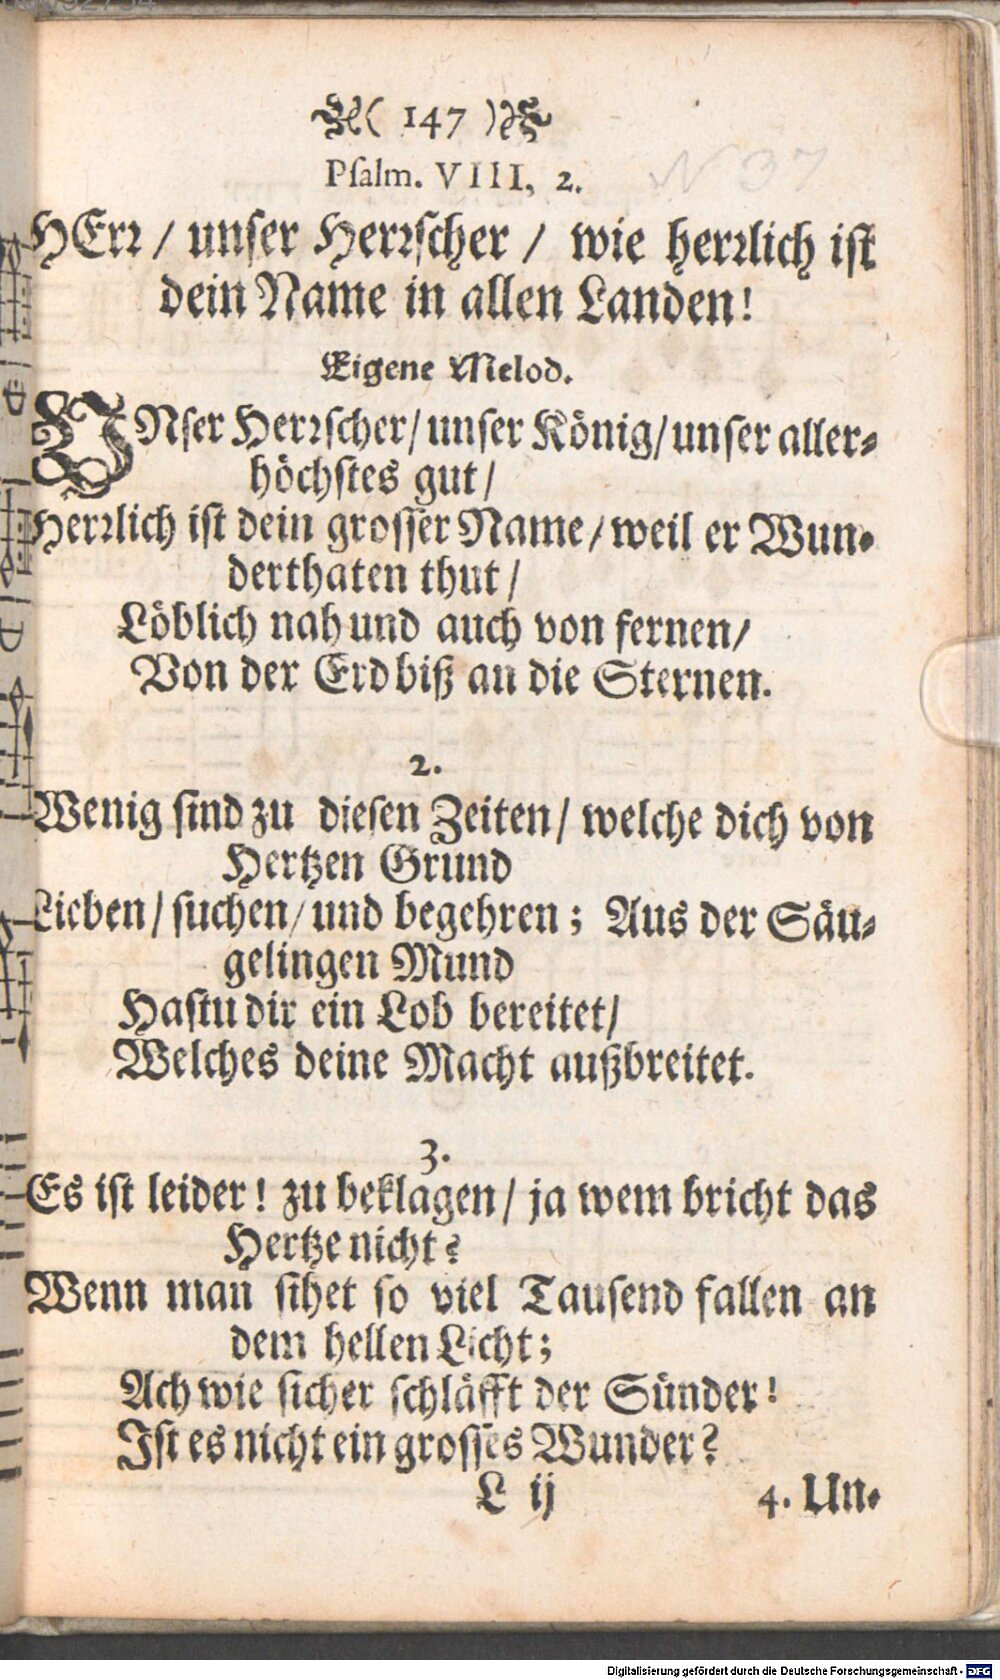 ( 147 )
N 37
Psalm. VIII, 2.
HErr / unser Herrscher / wie herrlich ist
dein Name in allen Landen!
Eigene Melod.
UNser Herrscher / unser König / unser aller-
höchstes gut /
Herrlich ist dein grosser Name / weil er Wun-
derthaten thut /
Löblich nah und auch von fernen /
Von der Erd biß an die Sternen.
2.
Wenig sind zu diesen Zeiten / welche dich von
Hertzen Grund
Lieben / suchen / und begehren ; Aus der Säu-
gelingen Mund
Hastu dir ein Lob bereitet /
Welches deine Macht außbreitet.
3.
Es ist leider! zu beklagen / ja wem bricht das
Hertze nicht?
Wenn man sihet so viel Tausend fallen an
dem hellen Licht ;
Ach wie sicher schläfft der Sünder!
Ist es nicht ein grosses Wunder?
L ij 4. Un-
Digitalisierung gefördert durch die Deutsche Forschungsgemeinschaft - DFG